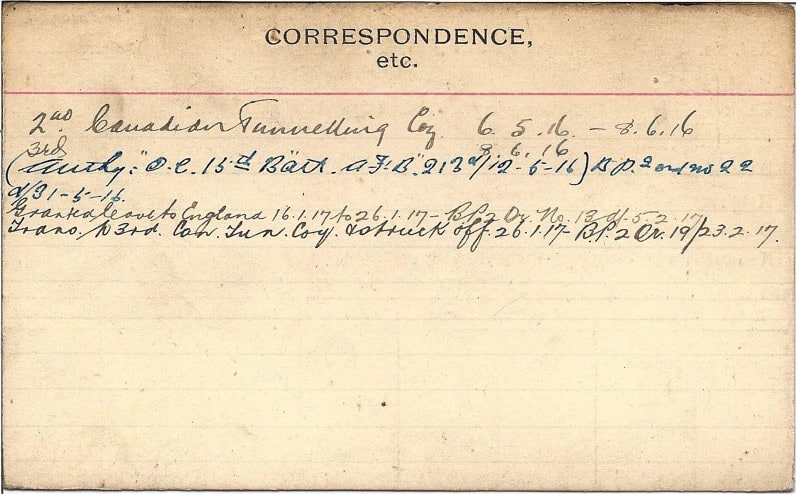 CORRESPONDENCE,
etc.
2nd Canadian Tunnelling Coy 6.5.16 - 8.6.16
3rd 8.6.16
(Authy: "O.C. 15th Batt. A.F.B." 213 d/12-5-16) B.P.2 ord no 22
d/31-5-16.
Granted leave to England 16.1.17 to 26.1.17 - B.P.2 Or. No. 13 d/5.2.17
Trans. to 3rd. Can. Tun. Coy. & struck off. 26.1.17 B.P.2 Or. 19/23.2.17.